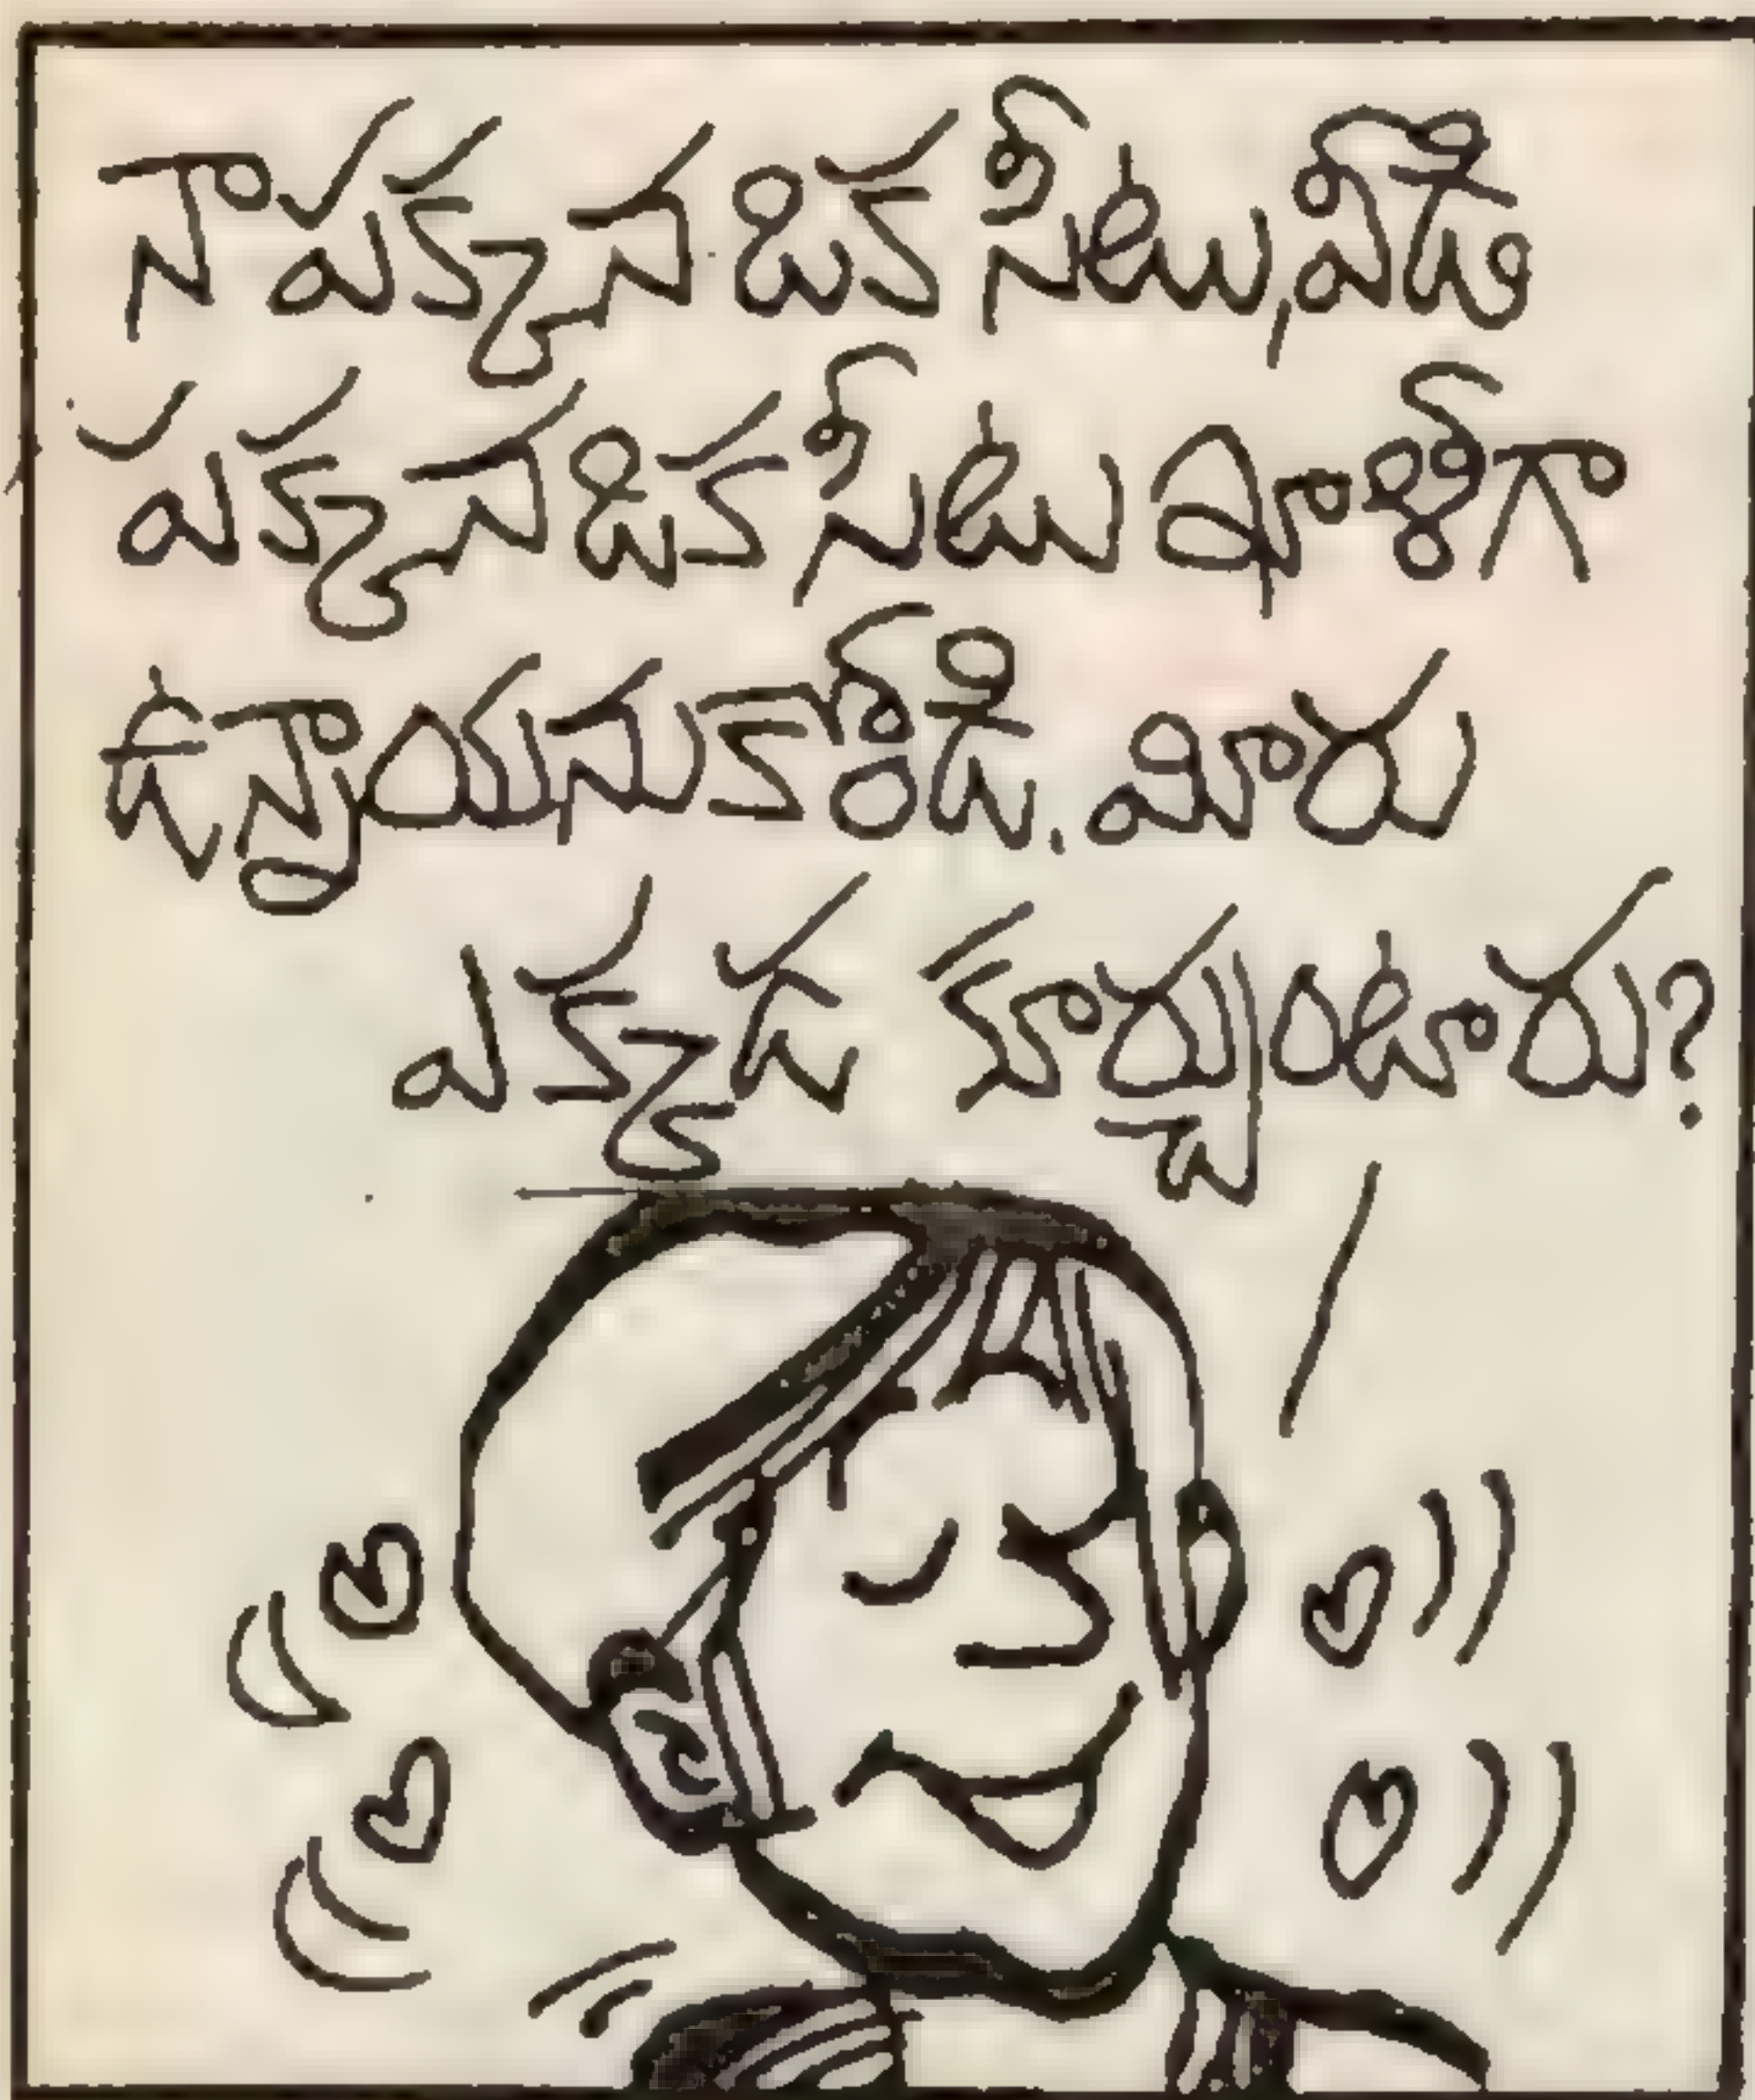 నా పక్కన ఒక సీటు, వీడి
పక్కన ఒక సీటు ఖాళీగా
ఉన్నాయనుకోండి. మీరు
ఎక్కడ కూర్చుంటారు?